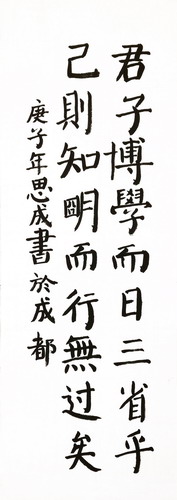 君子博學而日三省乎
己則知明而行無过矣
庚子年思成書於成都